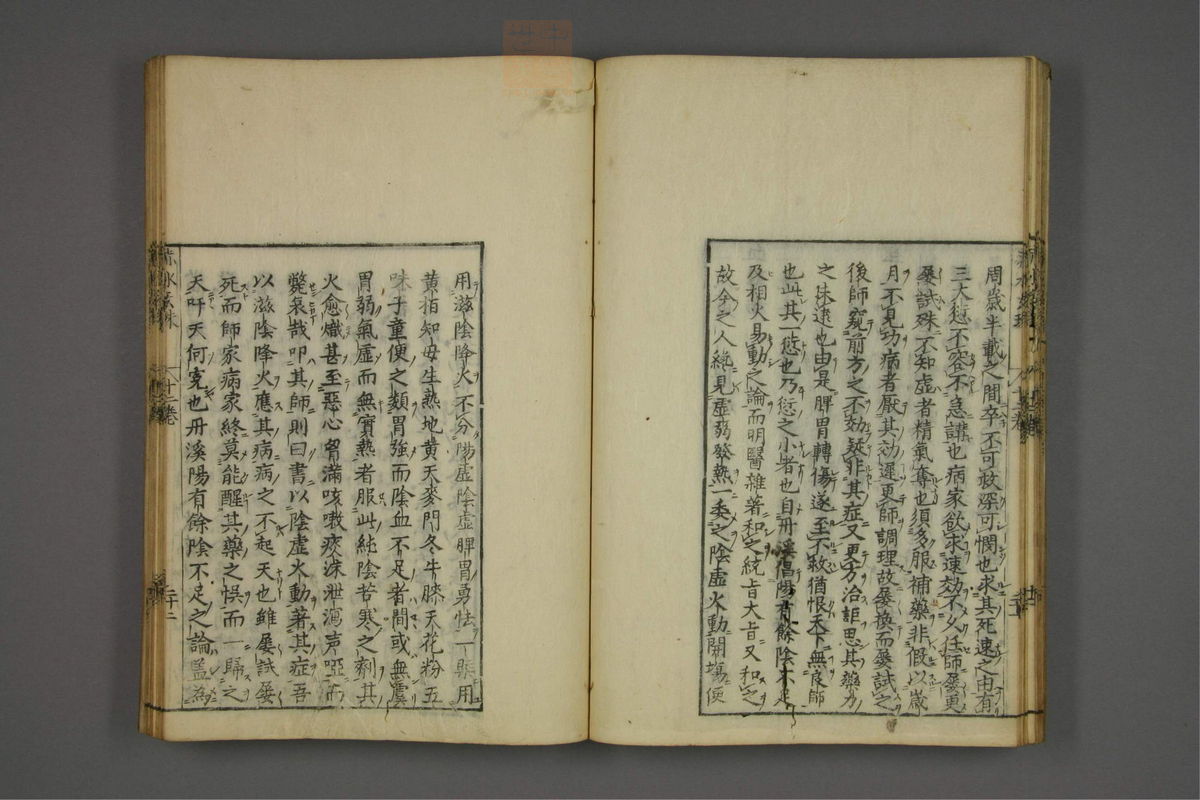 周歳半載之間卒不可救深可憫也求其死速之由有
三大愆不容不急講也病家欲求速効不久任師屡更
屡試殊不知虚者精氣奪也須多服補藥非假以歳
月不見功病者厭其効遲更師調理故屡換而屡試之
後師窺前方之不効疑非其症又更方治詎思其藥力
之未逮也由是脾胃轉傷遂至不救猶恨天下無良師
也此其一愆也乃愆之小者也自丹溪倡陽有餘陰不足
及相火易動之論而明醫雜著和之統旨大旨又和之
故今之人纔見虚弱發熱一委之陰虚火動開塲便
用滋陰降火不分陽虚陰虚脾胃勇怯一槩用
黄栢知母生熟地黄天麥門冬牛膝天花粉五
味子童便之類胃強而陰血不足者間或無虞
胃弱氣虚而無實熱者服此純陰苦寒之劑其
火愈熾甚至惡心胷滿咳嗽痰沫泄瀉声啞而
斃哀哉叩其師則曰書以陰虚火動著其症吾
以滋陰降火應其病病之不起天也雖屡試屡
死而師家病家終莫能醒其藥之悞而一歸之
天吁天何寃也丹溪陽有餘陰不足之論盖為
赤水玄珠
十二卷
二十二